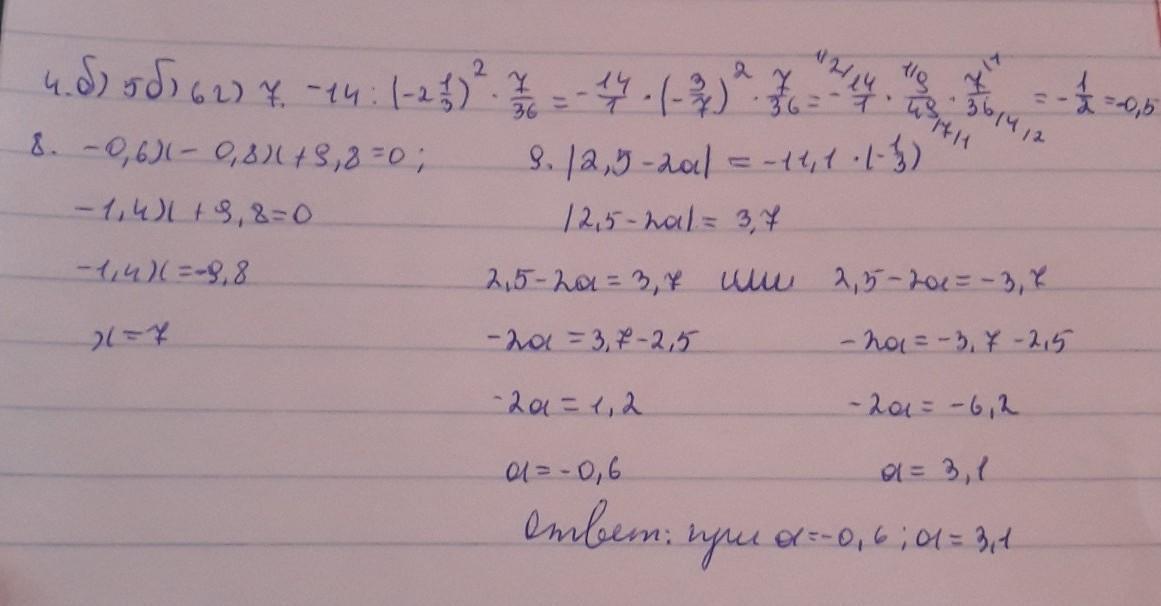 4. б) 5б) 6г) 7. -14 : (-2 1/3)² · 7/36 = -14/1 · (-3/7)² · 7/36 = -14/7 · 9/49 · 7/36 = -1/2 = -0,5
8. -0,6x - 0,8x + 9,8 = 0; 9. |2,5 - 2a| = -11,1 · (-1/3)
-1,4x + 9,8 = 0 |2,5 - 2a| = 3,7
-1,4x = -9,8 2,5 - 2a = 3,7 или 2,5 - 2a = -3,7
x = 7 -2a = 3,7 - 2,5 -2a = -3,7 - 2,5
-2a = 1,2 -2a = -6,2
a = -0,6 a = 3,1
Ответ: при a = -0,6; a = 3,1